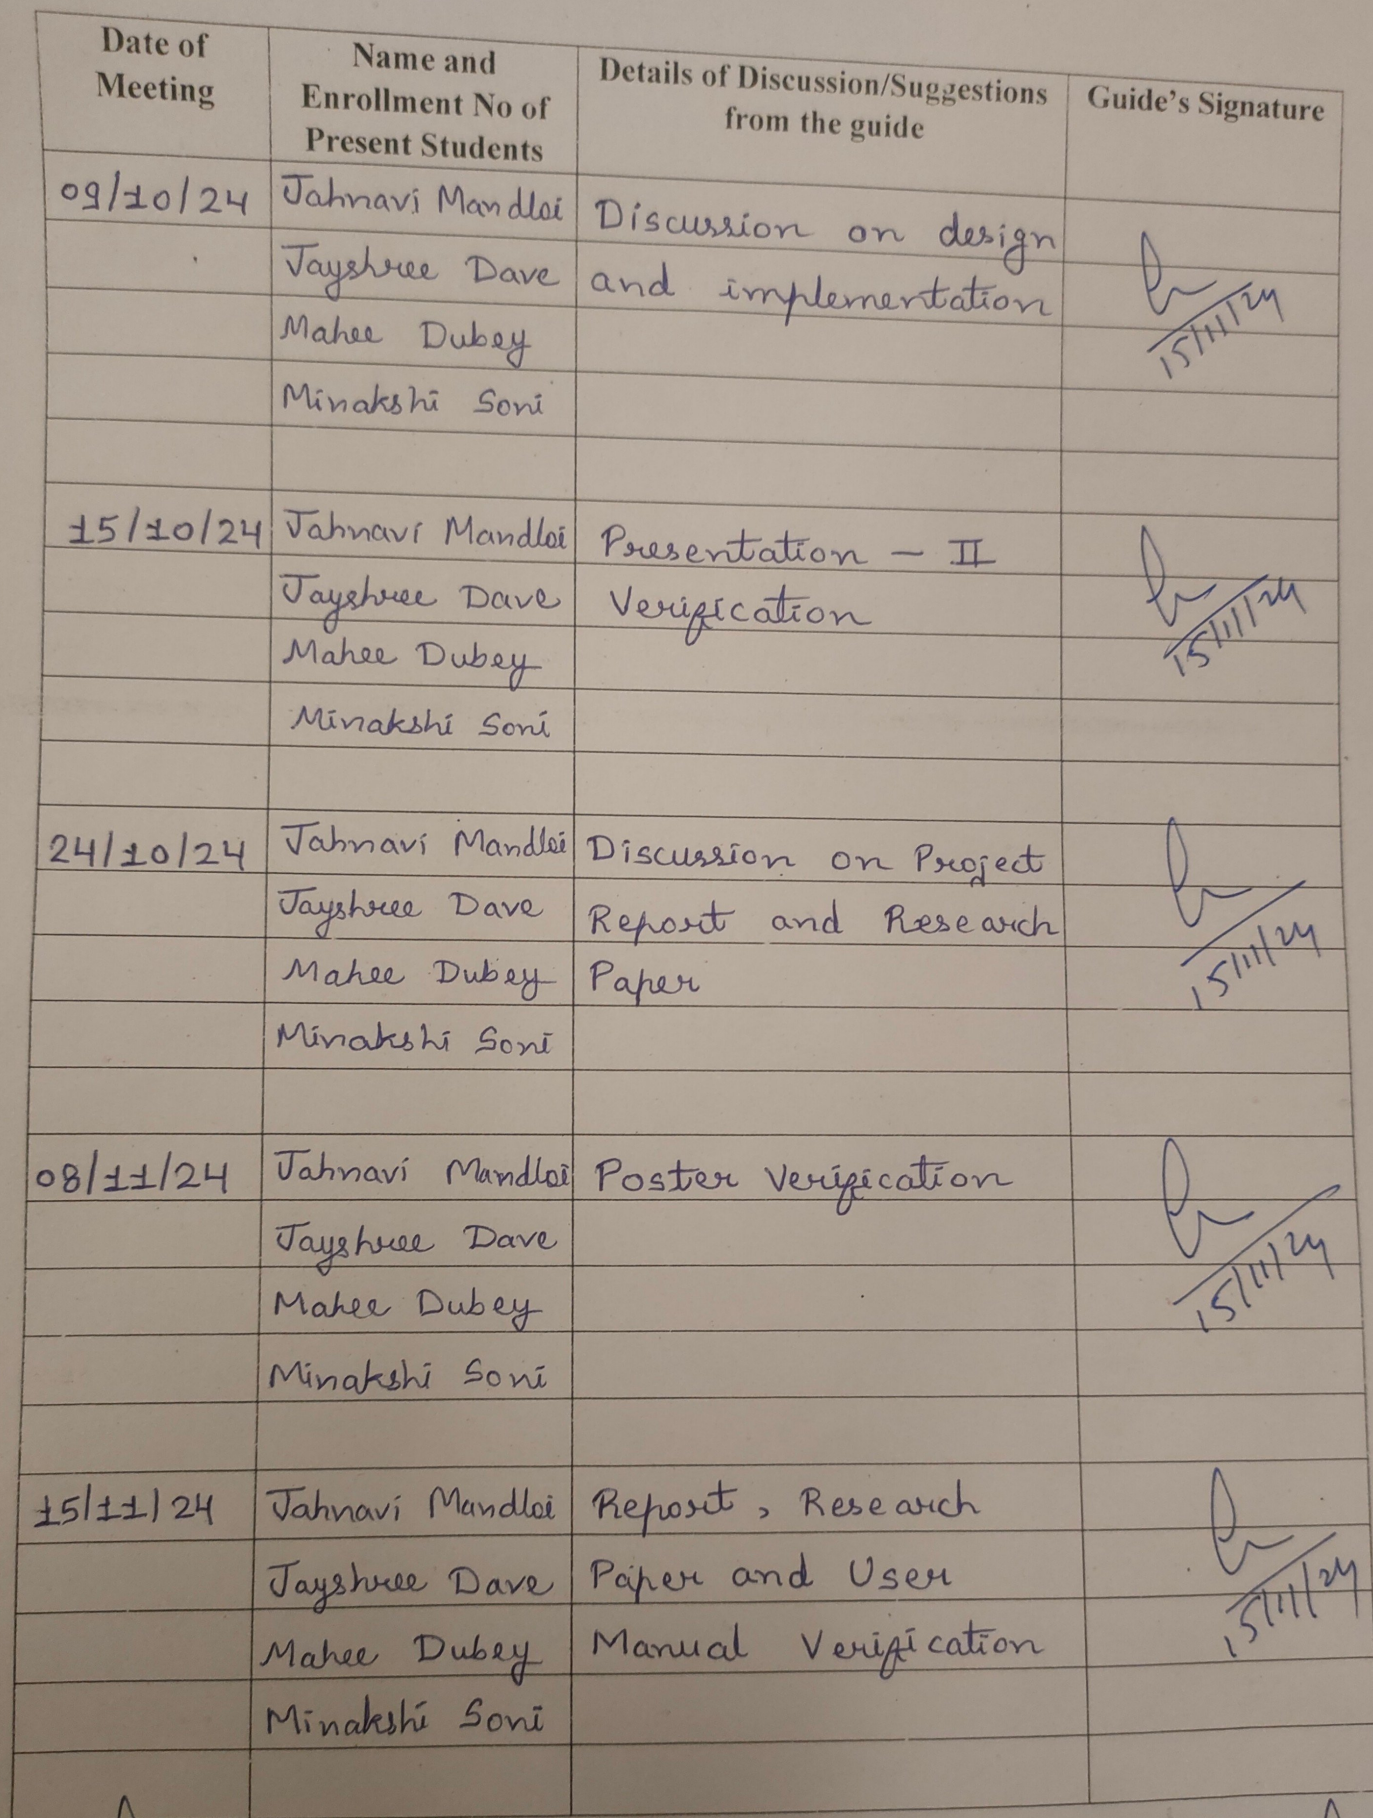 Date of Meeting | Name and Enrollment No of Present Students | Details of Discussion/Suggestions from the guide | Guide's Signature
09/10/24 | Jahnavi Mandloi | Discussion on design
Jayshree Dave | and implementation
15/11/24
Mahee Dubey
Minakshi Soni
15/10/24 | Jahnavi Mandloi | Presentation - II
Jayshree Dave | Verification
15/11/24
Mahee Dubey
Minakshi Soni
24/10/24 | Jahnavi Mandloi | Discussion on Project
Jayshree Dave | Report and Research
15/11/24
Mahee Dubey | Paper
Minakshi Soni
08/11/24 | Jahnavi Mandloi | Poster Verification
Jayshree Dave
15/11/24
Mahee Dubey
Minakshi Soni
15/11/24 | Jahnavi Mandloi | Report, Research
Jayshree Dave | Paper and User
15/11/24
Mahee Dubey | Manual Verification
Minakshi Soni